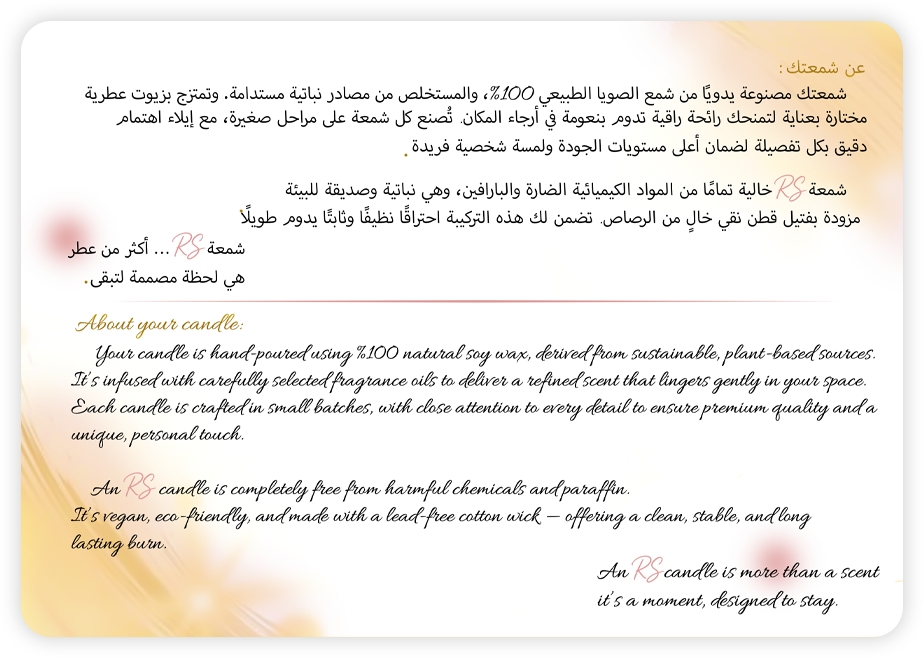 عن شمعتك:
شمعتك مصنوعة يدويًا من شمع الصويا الطبيعي 100%، والمستخلص من مصادر نباتية مستدامة. وتمتزج بزيوت عطرية
مختارة بعناية لتمنحك رائحة راقية تدوم بنعومة في أرجاء المكان. تُصنع كل شمعة على مراحل صغيرة، مع إيلاء اهتمام
دقيق بكل تفصيلة لضمان أعلى مستويات الجودة ولمسة شخصية فريدة.
شمعة RS خالية تمامًا من المواد الكيميائية الضارة والبارافين، وهي نباتية وصديقة للبيئة
مزودة بفتيل قطن نقي خالٍ من الرصاص. تضمن لك هذه التركيبة احتراقًا نظيفًا وثابتًا يدوم طويلًا.
شمعة RS ... أكثر من عطر
هي لحظة مصممة لتبقى.
About your candle:
Your candle is hand-poured using %100 natural soy wax, derived from sustainable, plant-based sources.
It's infused with carefully selected fragrance oils to deliver a refined scent that lingers gently in your space.
Each candle is crafted in small batches, with close attention to every detail to ensure premium quality and a
unique, personal touch.
An RS candle is completely free from harmful chemicals and paraffin.
It's vegan, eco-friendly, and made with a lead-free cotton wick — offering a clean, stable, and long
lasting burn.
An RS candle is more than a scent
it's a moment, designed to stay.